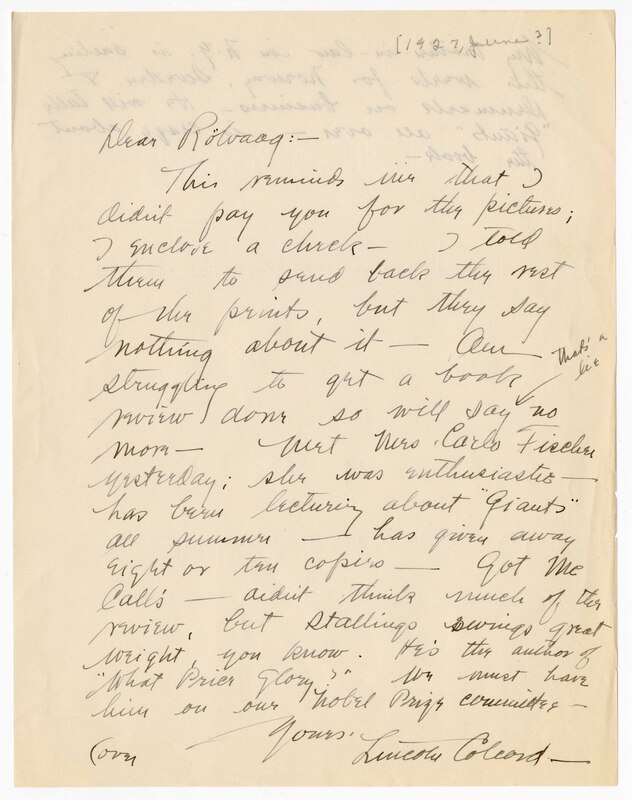 [1927, June?]
Dear Rölvaag:—
This reminds me that I
didn't pay you for the pictures;
I enclose a check— I told
them to send back the rest
of the prints, but they say
nothing about it — Am
struggling to get a book
that's a
lie
review done so will say no
more— Met Mrs. Carlo Fischer
yesterday; she was enthusiastic—
has been lecturing about "Giants"
all summer — has given away
eight or ten copies — Got Mc
Call's — didn't think much of the
review, but Stallings swings great
weight, you know. He's the author of
"What Price Glory?" We must have
him on our Nobel Prize committee —
Yours.
Lincoln Colcord —
(over